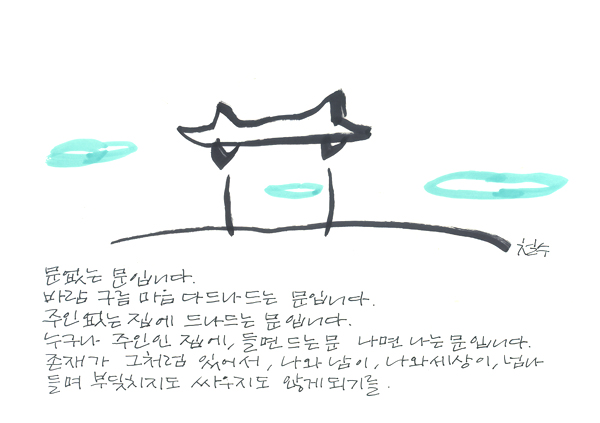 철수
문없는 문입니다.
바람 구름 마음 다 드나드는 문입니다.
주인 없는 집에 드나드는 문입니다.
누구나 주인인 집에, 들면 드는 문 나면 나는 문입니다.
존재가 그처럼 있어서, 나와 남이, 나와 세상이, 넘나
들며 부딪치지도 싸우지도 않게 되기를.